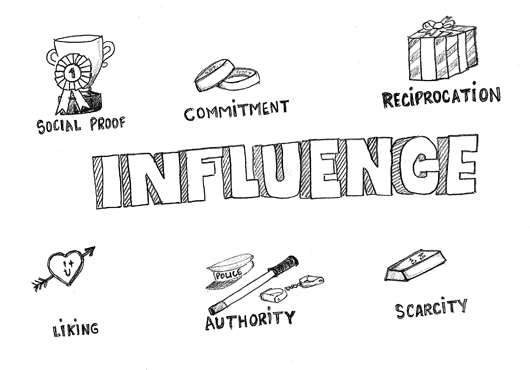 1
SOCIAL PROOF
COMMiTMENT
RECiPROCATiON
INFLUENCE
POLICE
LiKiNG
AUTHORiTY
SCARCiTY